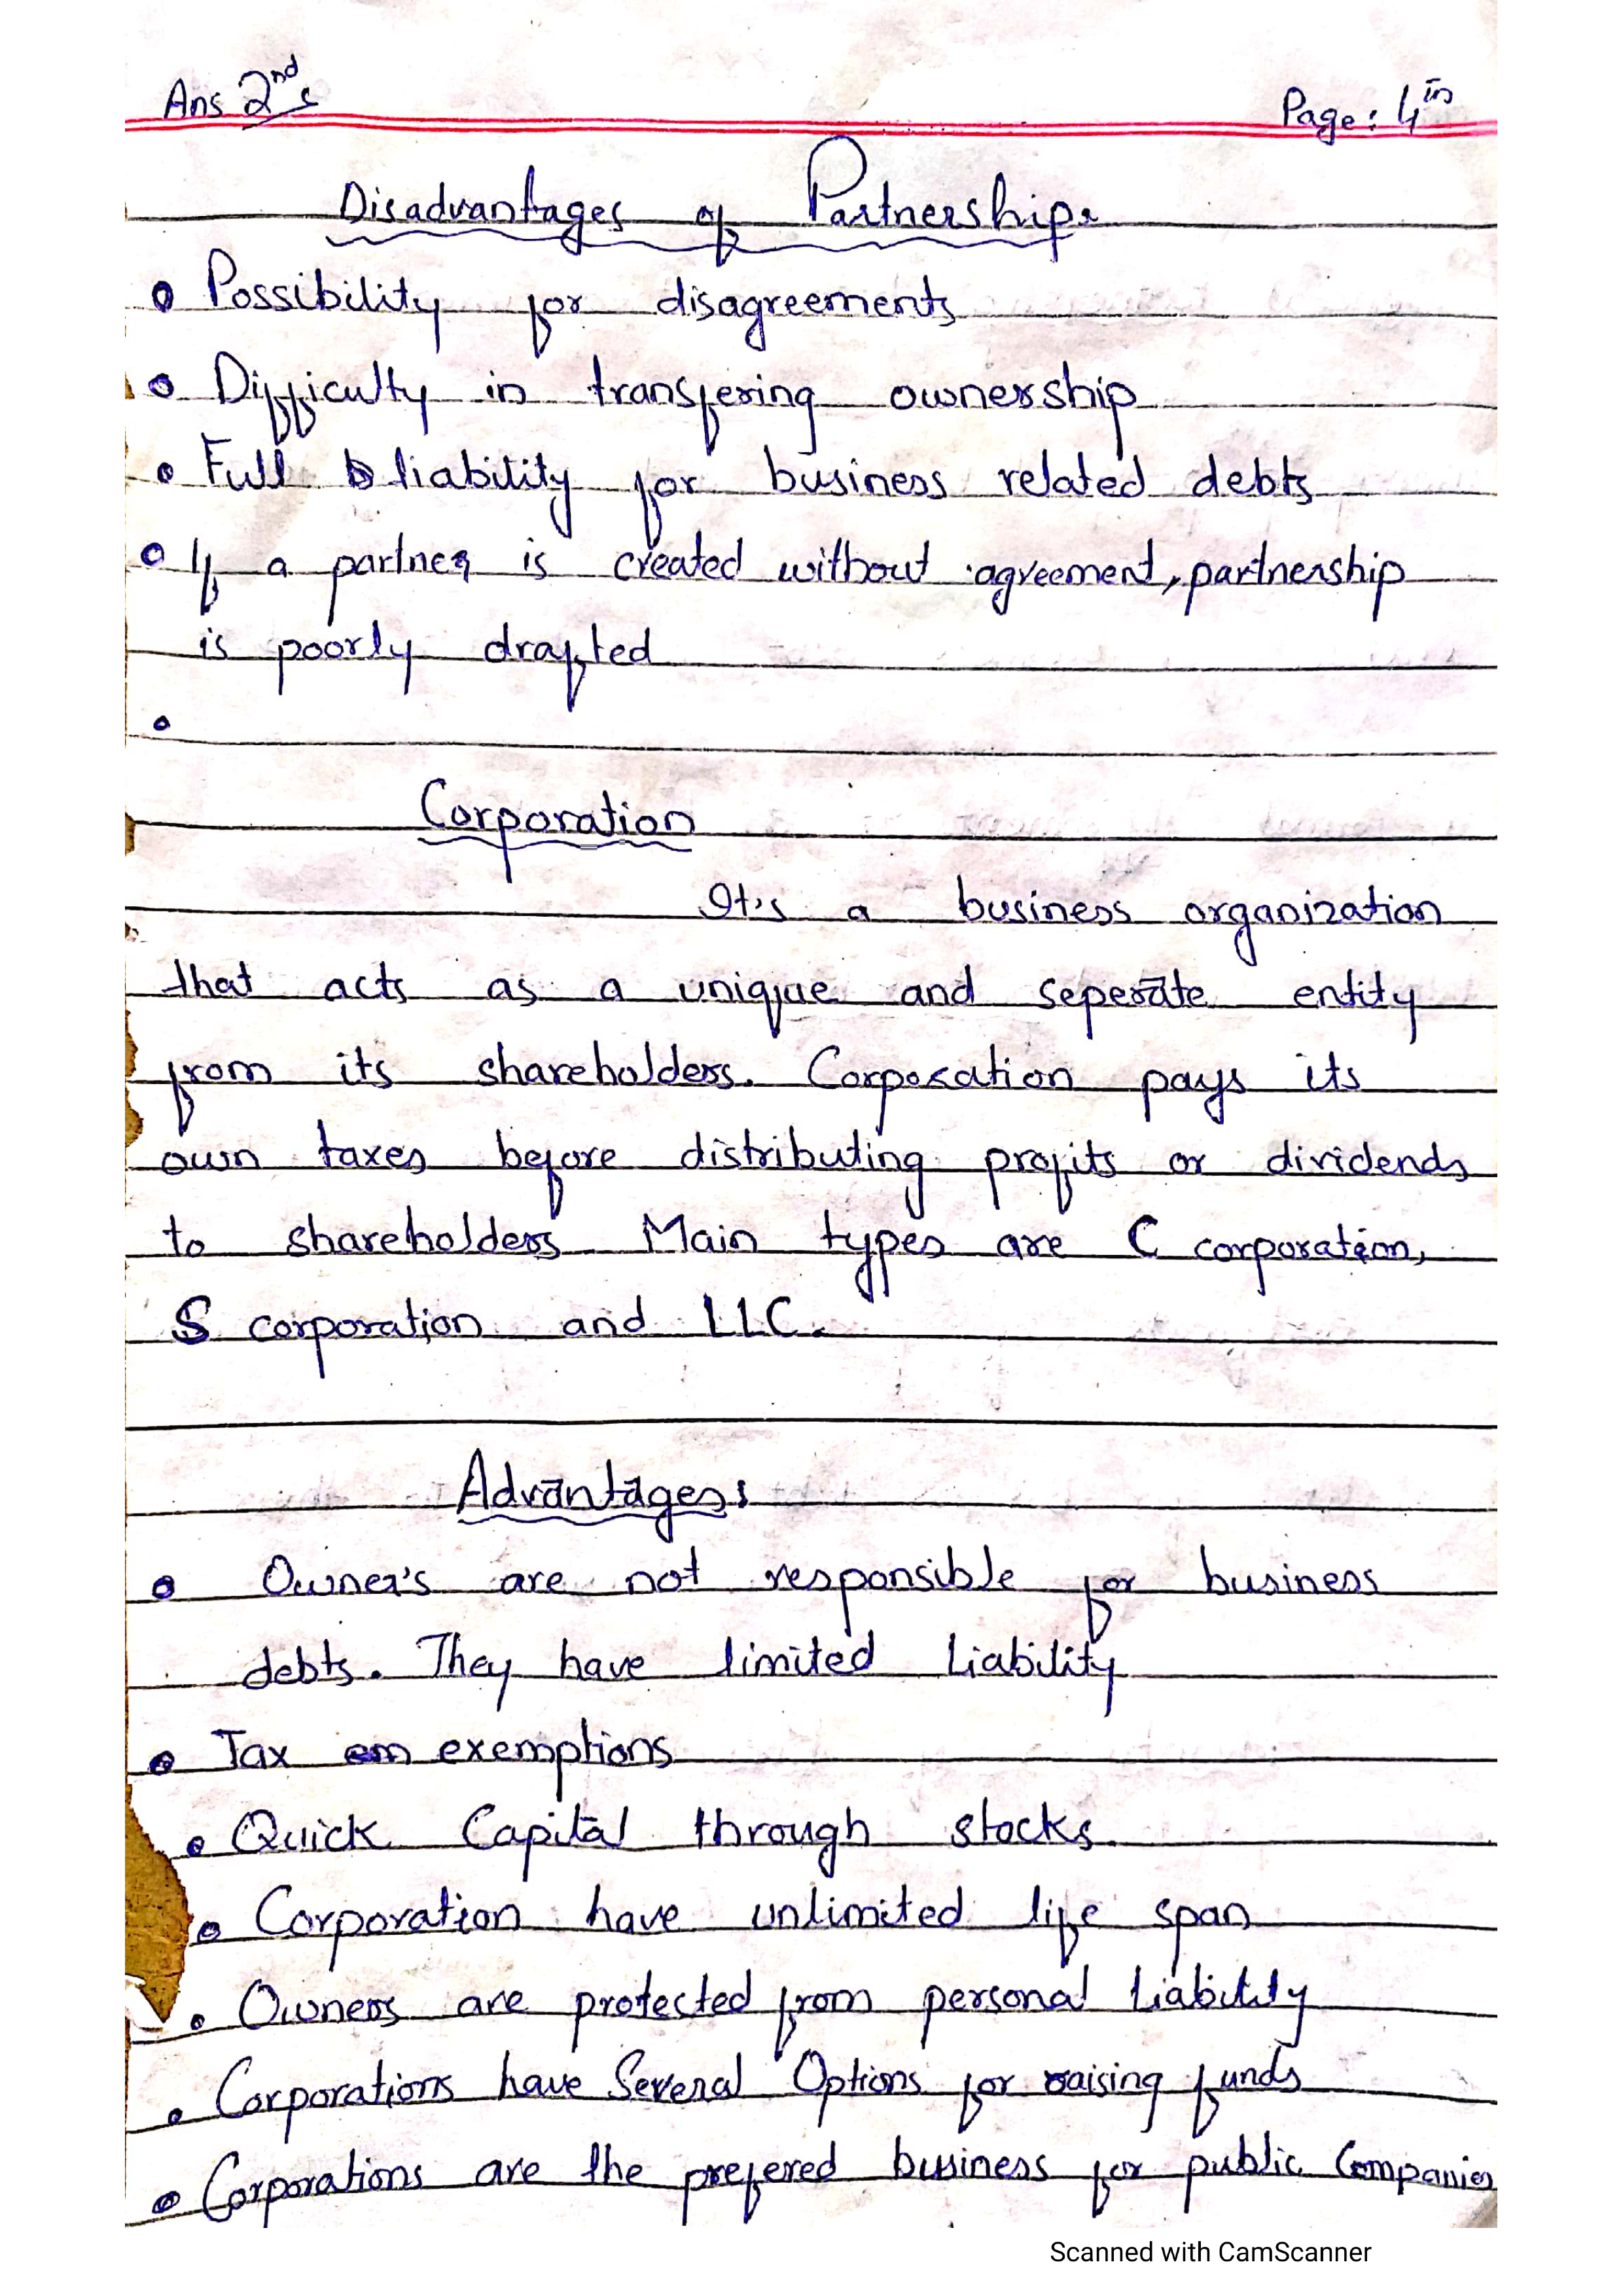 Ans 2nd:
Page: 4th
Disadvantages of Partnership:
• Possibility for disagreements
• Difficulty in transfering ownership
• Full liability for business related debts
• If a partner is created without agreement, partnership
is poorly drafted
•
Corporation
It's a business organization
that acts as a unique and seperate entity
from its shareholders. Corporation pays its
own taxes before distributing profits or dividends
to shareholders. Main types are C corporation,
S corporation and LLC.
Advantages:
• Owner's are not responsible for business
debts. They have limited Liability
• Tax exemptions
• Quick Capital through stocks.
• Corporation have unlimited life span
• Owners are protected from personal Liability
• Corporations have Several Options for raising funds
• Corporations are the prefered business for public Companies
Scanned with CamScanner